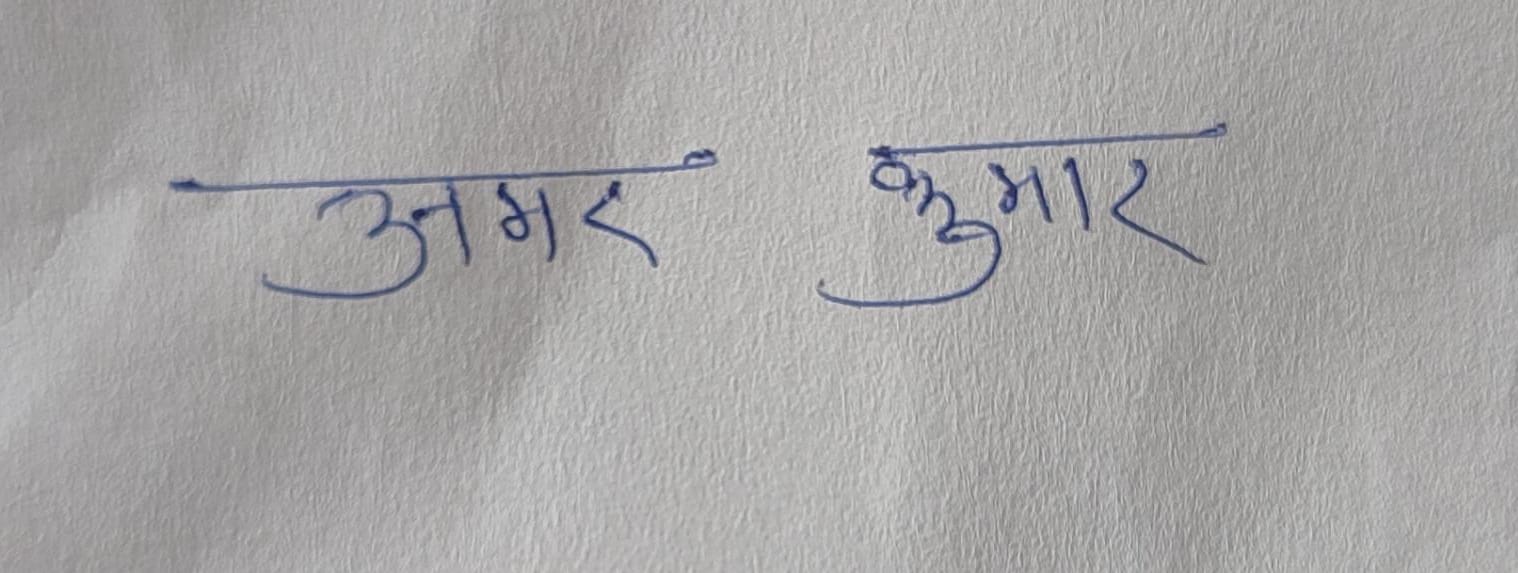 अमर कुमार